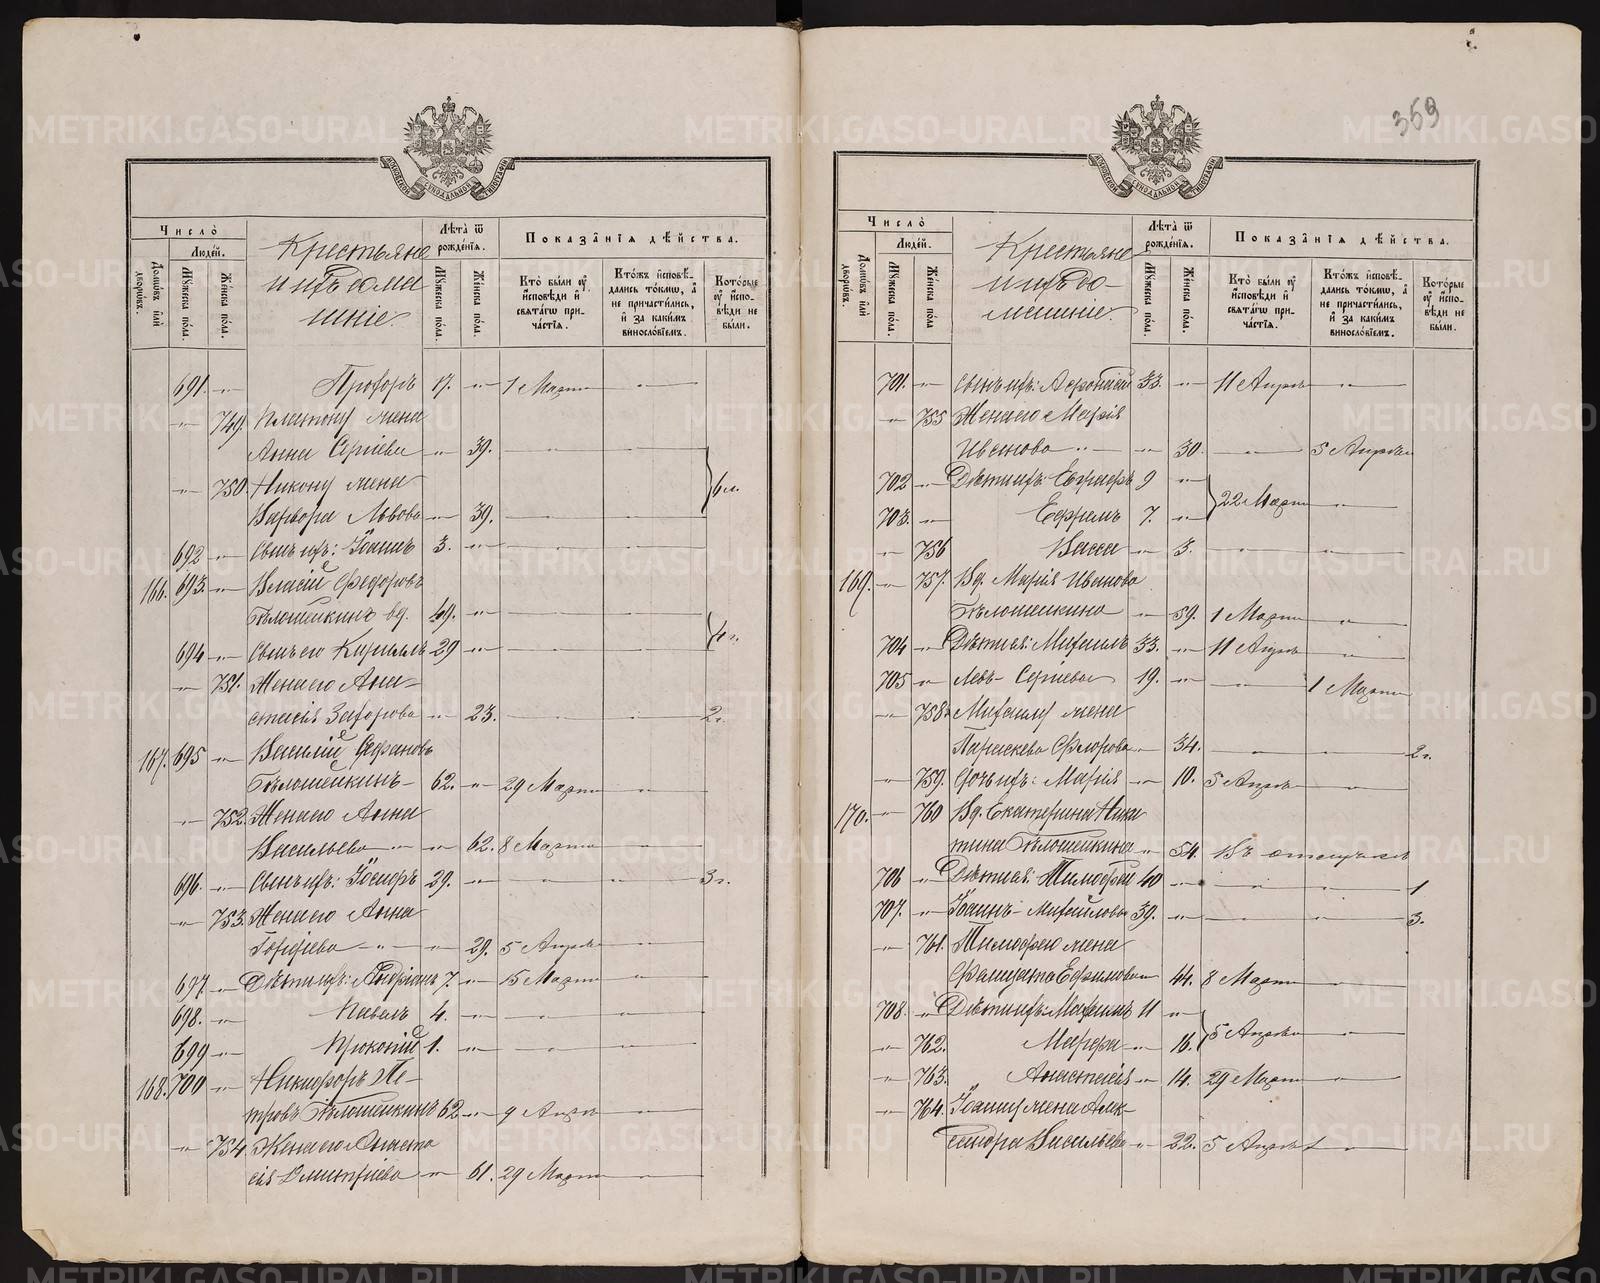 359
Число̀
Людей.
Домѡвъ илѝ дворѡвъ.
Мꙋжеска по́ла.
Же́нска по́ла.
Крестьяне
и ихъ дома
шніе.
Лѣта̀ ѿ рожде́нїя.
Мꙋжеска по́ла.
Же́нска по́ла.
Показа́нїя дѣ́йства.
Кто̀ бы́ли ᲂу҆ и҆сповѣди и҆ свята́гѡ прича́стїя.
Кто́жъ и҆сповѣдались то́кмѡ, а҆ не причасти́лись, и҆ за каки́мъ виносло́вїемъ.
Кото́рые ᲂу҆ и҆сповѣди не бы́ли.
691. -„- Прохоръ 17. -„- 1 Марта -„-
-„- 749. Платону жена
Анна Сергіева -„- 39. -„- -„-
-„- 750. Никону жена
Варвара Львова -„- 39. -„- -„-
692 -„- Сынъ ихъ: Іоаннъ 3. -„- -„- -„-
166. 693. -„- Власій Федоровъ
Бѣлошейкинъ вд. 49. -„- -„- -„-
694 -„- Сынъ его Кириллъ 29 -„- -„- -„-
-„- 751. Жена его Ана-
стасія Захарова -„- 23. -„- -„- 2 г.
167. 695 -„- Василій Стефановъ
Бѣлошейкинъ 62. -„- 29 Марта -„-
-„- 752. Жена его Анна
Васильева -„- -„- 62. 8 Марта -„-
696. -„- Сынъ ихъ: Іосифъ 29. -„- -„- -„- 3 г.
-„- 753. Жена его Анна
-„- -„- 29. 5 Апрѣля -„-
697. -„- Дѣти ихъ: Андріанъ 7. -„- 15 Марта -„-
698. -„- Павелъ 4. -„- -„- -„-
699 -„- Прокопій 1. -„- -„- -„-
168. 700 -„- Никифоръ Пе-
тровъ Бѣлошейкинъ 62 -„- 9 Апрѣля -„-
-„- 754 Жена его Анаста
сія Димитріева -„- 61. 29 Марта -„-
Число̀
Людей.
Домѡвъ илѝ дворѡвъ.
Мꙋжеска по́ла.
Же́нска по́ла.
Крестьяне
и ихъ до-
машніе.
Лѣта̀ ѿ рожде́нїя.
Мꙋжеска по́ла.
Же́нска по́ла.
Показа́нїя дѣ́йства.
Кто̀ бы́ли ᲂу҆ и҆сповѣди и҆ свята́гѡ прича́стїя.
Кто́жъ и҆сповѣдались то́кмѡ, а҆ не причасти́лись, и҆ за каки́мъ виносло́вїемъ.
Кото́рые ᲂу҆ и҆сповѣди не бы́ли.
701. -„- Сынъ ихъ: 33. -„- 11 Апрѣля -„-
-„- 755 Жена его Марія
Иванова -„- -„- 30. -„- 5 Апрѣля
702 -„- Дѣти ихъ: 9 -„-
22 Марта -„-
703. -„- Ефремъ 7. -„-
-„- 756 Васса -„- 3. -„- -„-
169. -„- 757. Вд. Марія Иванова
Бѣлошейкина -„- 59. 1 Марта -„-
704 -„- Дѣти ея: Михаилъ 33. -„- 11 Апрѣля -„-
705 -„- Левъ Сергіевы 19. -„- -„- 1 Марта
-„- 758 Михаилу жена
Параскева Флорова -„- 34. -„- -„- 2 г.
-„- 759. Дочь ихъ: Марія -„- 10. 5 Апрѣля -„-
170. -„- 760 Вд. Екатерина Ники
тина Бѣлошейкина -„- 54. Въ отлучкѣ
706 -„- Дѣти ея: Тимофей 40 -„- -„- -„- 1
707. -„- Іоаннъ Михайловы 39. -„- -„- -„- 3.
-„- 761. Тимофею жена
Ефимова -„- 44. 8 Марта -„-
708. -„- Дѣти ихъ: 11 -„-
5 Апрѣля -„-
-„- 762. Марфа -„- 16.
-„- 763. Анастасія -„- 14. 29 Марта -„-
-„- 764. Іоанну жена Алек-
сандра Васильева -„- 22. 5 Апрѣля -„-